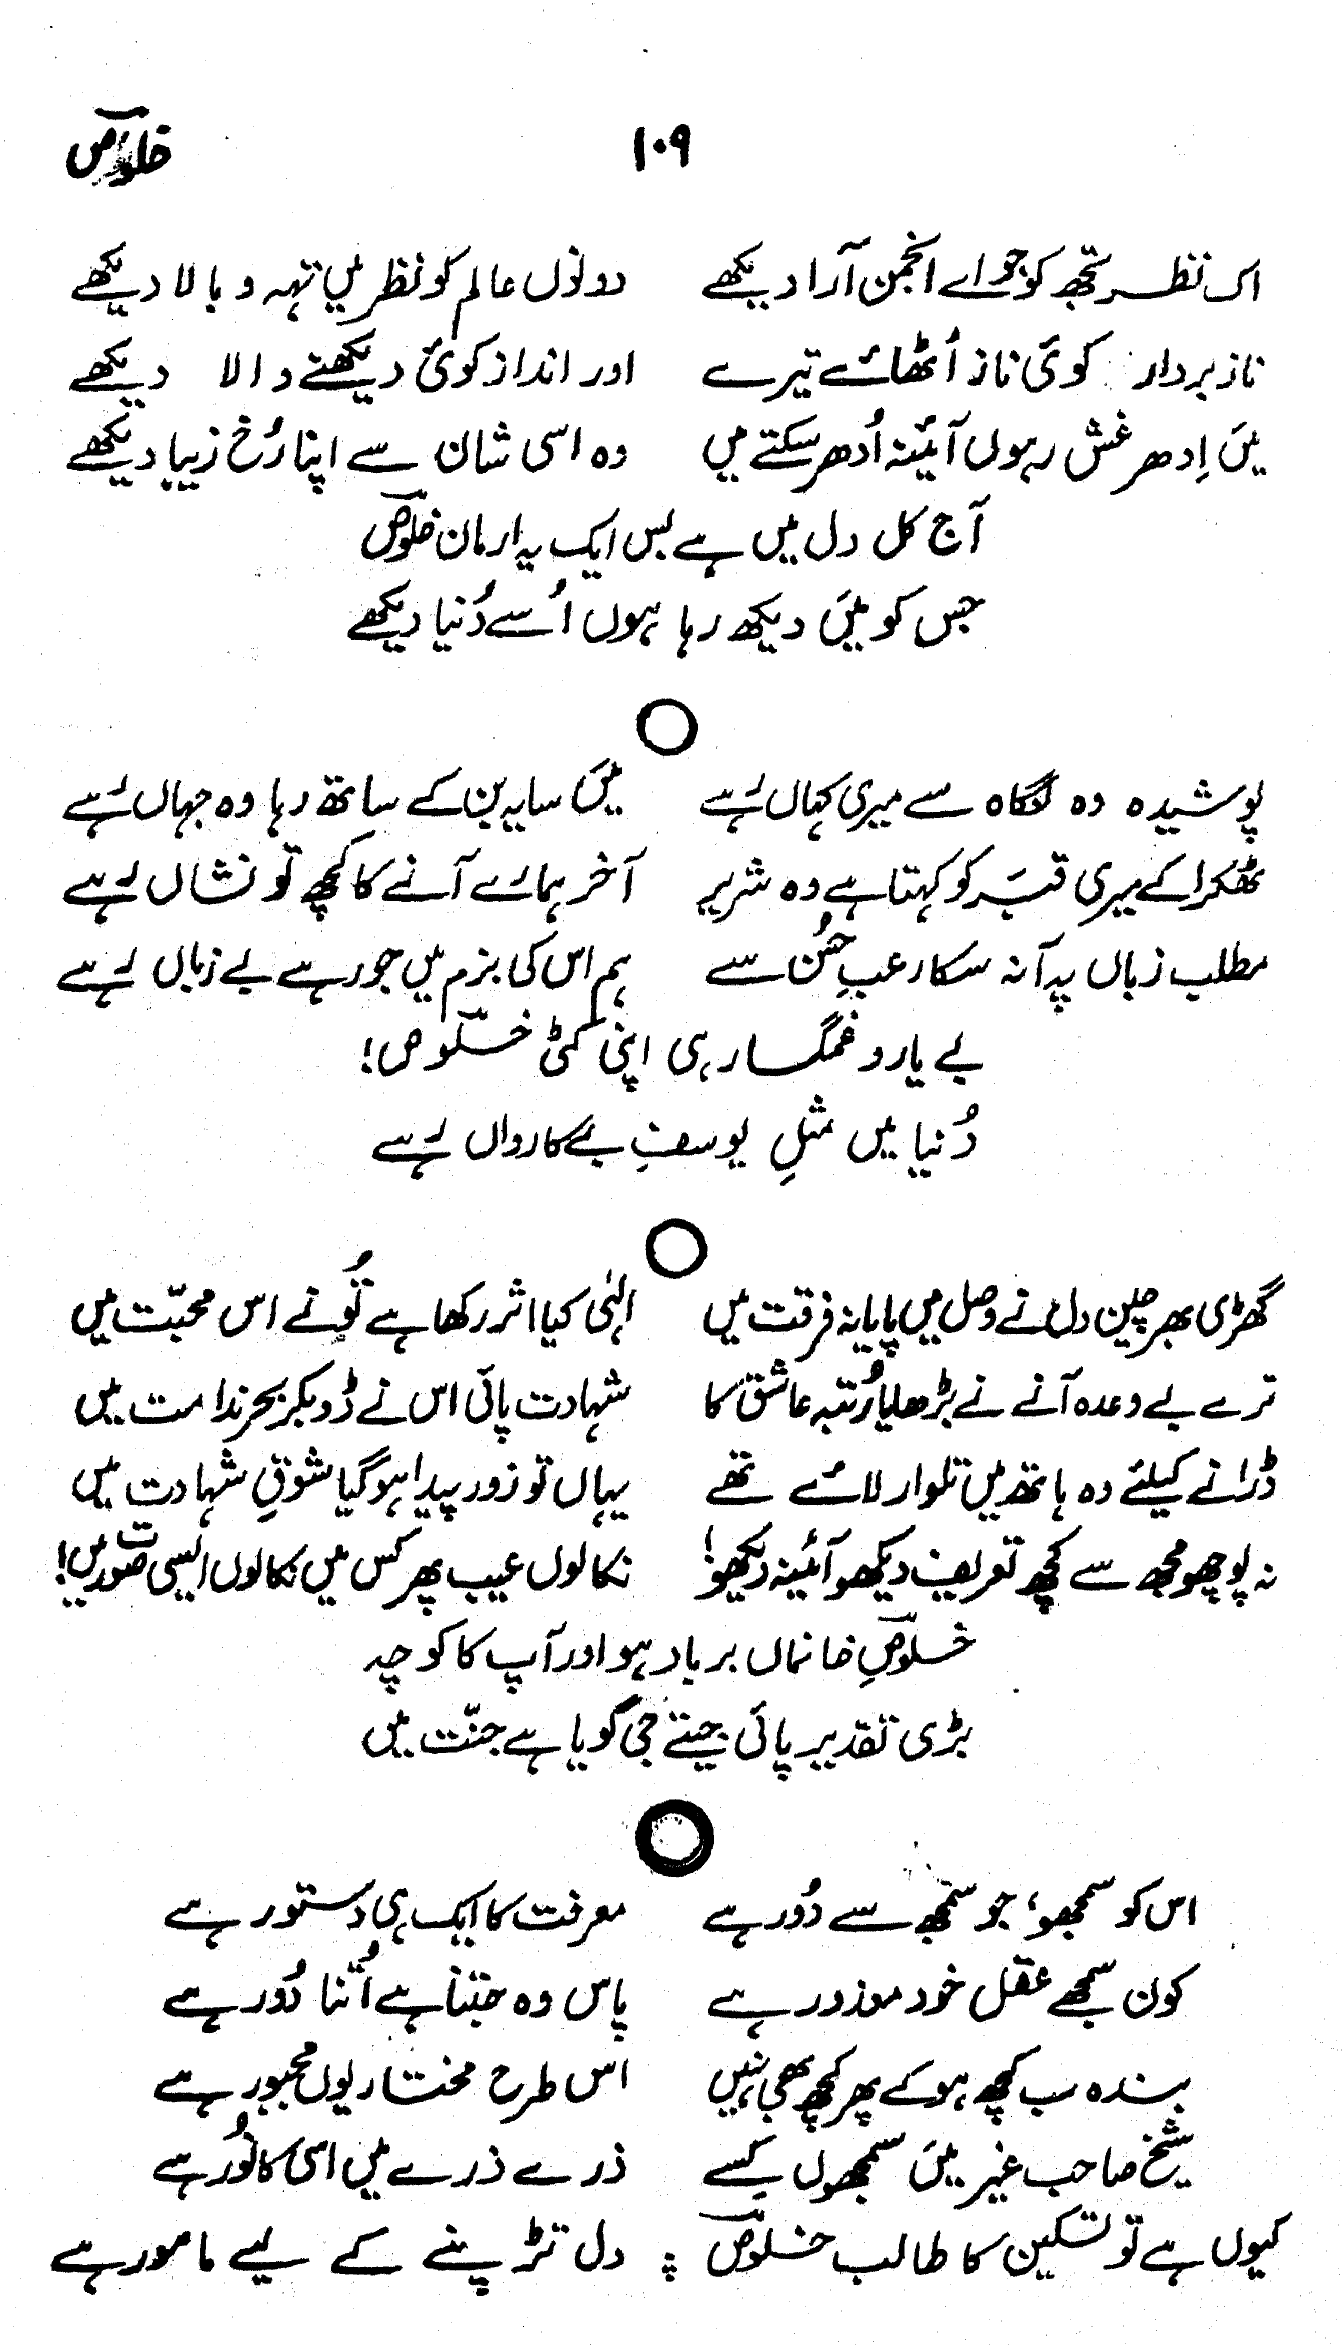 خلوصؔ ۱۰۹
اک نظر تجھ کو جو اے انجمن آرا دیکھے دونوں عالم کو نظر میں تہہ و بالا دیکھے
ناز بردار کوئی ناز اُٹھائے تیرے اور انداز کوئی دیکھنے والا دیکھے
میَں اِدھر غش رہوں آئینہ اُدھر سکتے میں وہ اسی شان سے اپنا رُخ زیبا دیکھے
آج کل دل میں ہے بس ایک یہ ارمان خلوصؔ
جس کو میَں دیکھ رہا ہوں اُسے دُنیا دیکھے
پوشیدہ وہ نگاہ سے میری کہاں رہے میَں سایہ بن کے ساتھ رہا وہ جہاں رہے
ٹھکرا کے میری قبر کو کہتا ہے وہ شریر آخر ہمارے آنے کا کچھ تو نشاں رہے
مطلب زباں پہ آ نہ سکا رعبِ حُسن سے ہم اس کی بزم میں جو رہے بے زباں رہے
بے یار و غمگسار ہی اپنی کٹی خلوصؔ!
دُنیا میں مثلِ یوسفِ بے کارواں رہے
گھڑی بھر چین دل نے وصل میں پایا نہ فرقت میں الٰہی کیا اثر رکھا ہے تُو نے اس محبّت میں
ترے بے وعدہ آنے نے بڑھایا رُتبہ عاشق کا شہادت پائی اس نے ڈوبکر بحرِ ندامت میں
ڈرانے کیلئے وہ ہاتھ میں تلوار لائے تھے یہاں تو زور پیدا ہو گیا شوقِ شہادت میں
نہ پوچھو مجھ سے کچھ تعریف دیکھو آئینہ دیکھو! نکالوں عیب پھر کس میں نکالوں ایسی صورت میں!
خلوصؔ خانماں برباد ہو اور آپ کا کوچہ
بڑی تقدیر پائی جیتے جی گویا ہے جنّت میں
اس کو سمجھو، جو سمجھ سے دُور ہے معرفت کا ایک ہی دستور ہے
کون سمجھے عقل خود معذور ہے پاس وہ جتنا ہے اُتنا دُور ہے
بندہ سب کچھ ہو کے پھر کچھ بھی نہیں اس طرح مختار یوں مجبور ہے
شیخ صاحب غیر میَں سمجھوں کسے ذرے ذرے میں اسی کا نُور ہے
کیوں ہے تو تسکین کا طالب خلوصؔ ؞ دل تڑپنے کے لیے مامور ہے